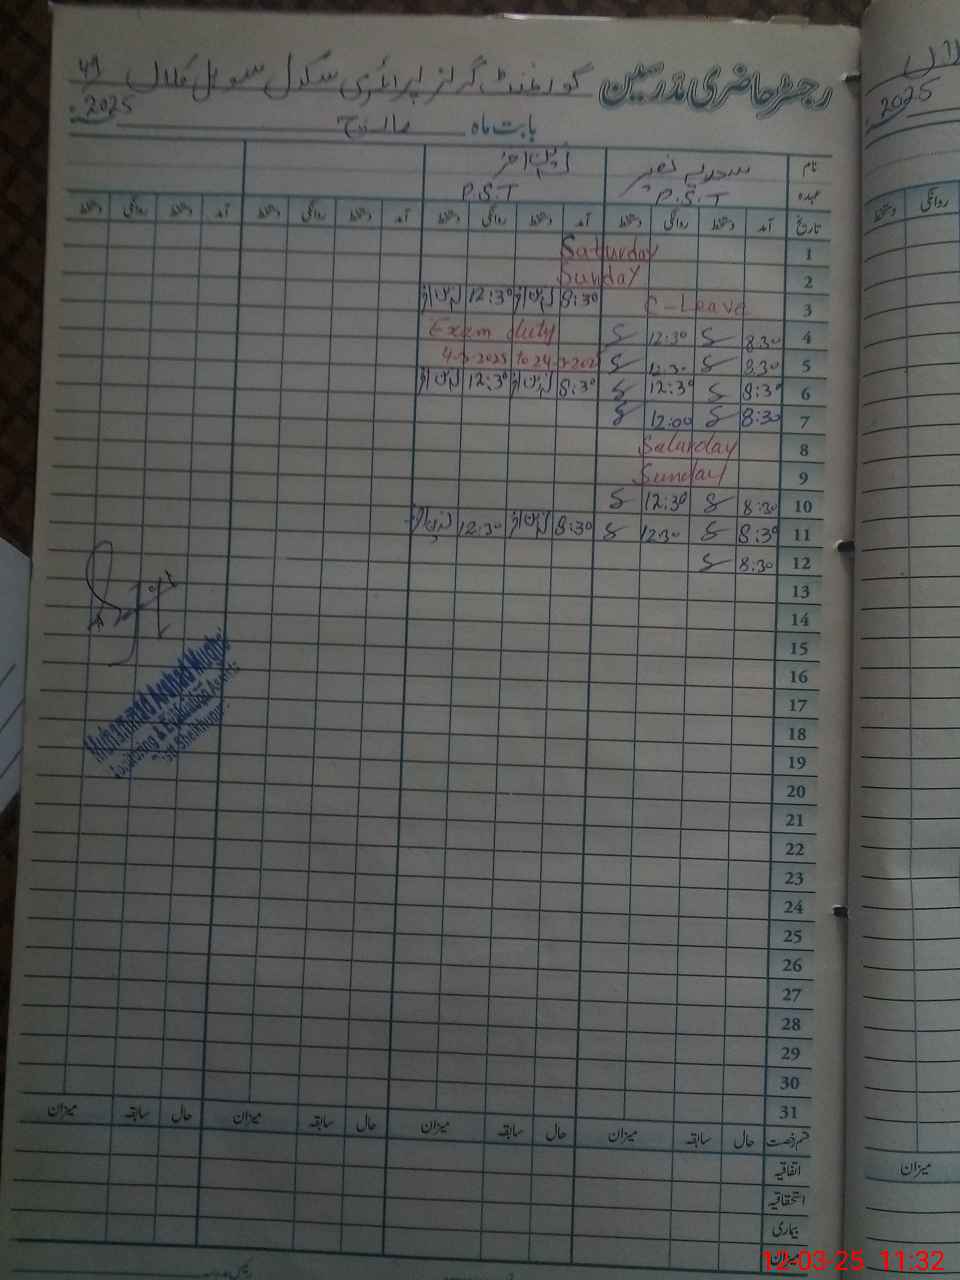 رجسٹر حاضری مدرسین گورنمنٹ گرلز پرائمری سکول
بابت ماہ مارچ 2025
نام
عہدہ P.S.T P.S.T
تاریخ آمد دستخط روانگی دستخط آمد دستخط روانگی دستخط آمد دستخط روانگی دستخط آمد دستخط روانگی دستخط
1 Saturday
2 Sunday
3 C-Leave 8:30 12:30
4 8:30 12:30 Exam duty
5 8:30 12:30 4-3-2025 to 24-3-202
6 8:30 12:30 8:30 12:30
7 8:30 12:00
8 Saturday
9 Sunday
10 8:30 12:30
11 8:30 12:30 8:30 12:30
12 8:30
13
14
15
16
17
18
19
20
21
22
23
24
25
26
27
28
29
30
31
قسم رخصت حال سابقہ میزان حال سابقہ میزان حال سابقہ میزان حال سابقہ میزان
اتفاقیہ
استحقاقیہ
بیماری
میزان
Muhammad Arshad
Monitoring & Evaluation Assistant
2025
روانگی دستخط
میزان
12-03-25 11:32